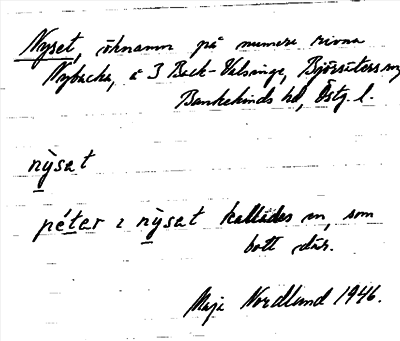 Nyset, öknamn på numera rivna
Nybacka, å 3 Back-Valsinge, Björsäters sn,
Bankekinds hd, Östg. l.
nỳsat
pétar ı nỳsat kallades en, som
bott där.
Maja Nordlund 1946.